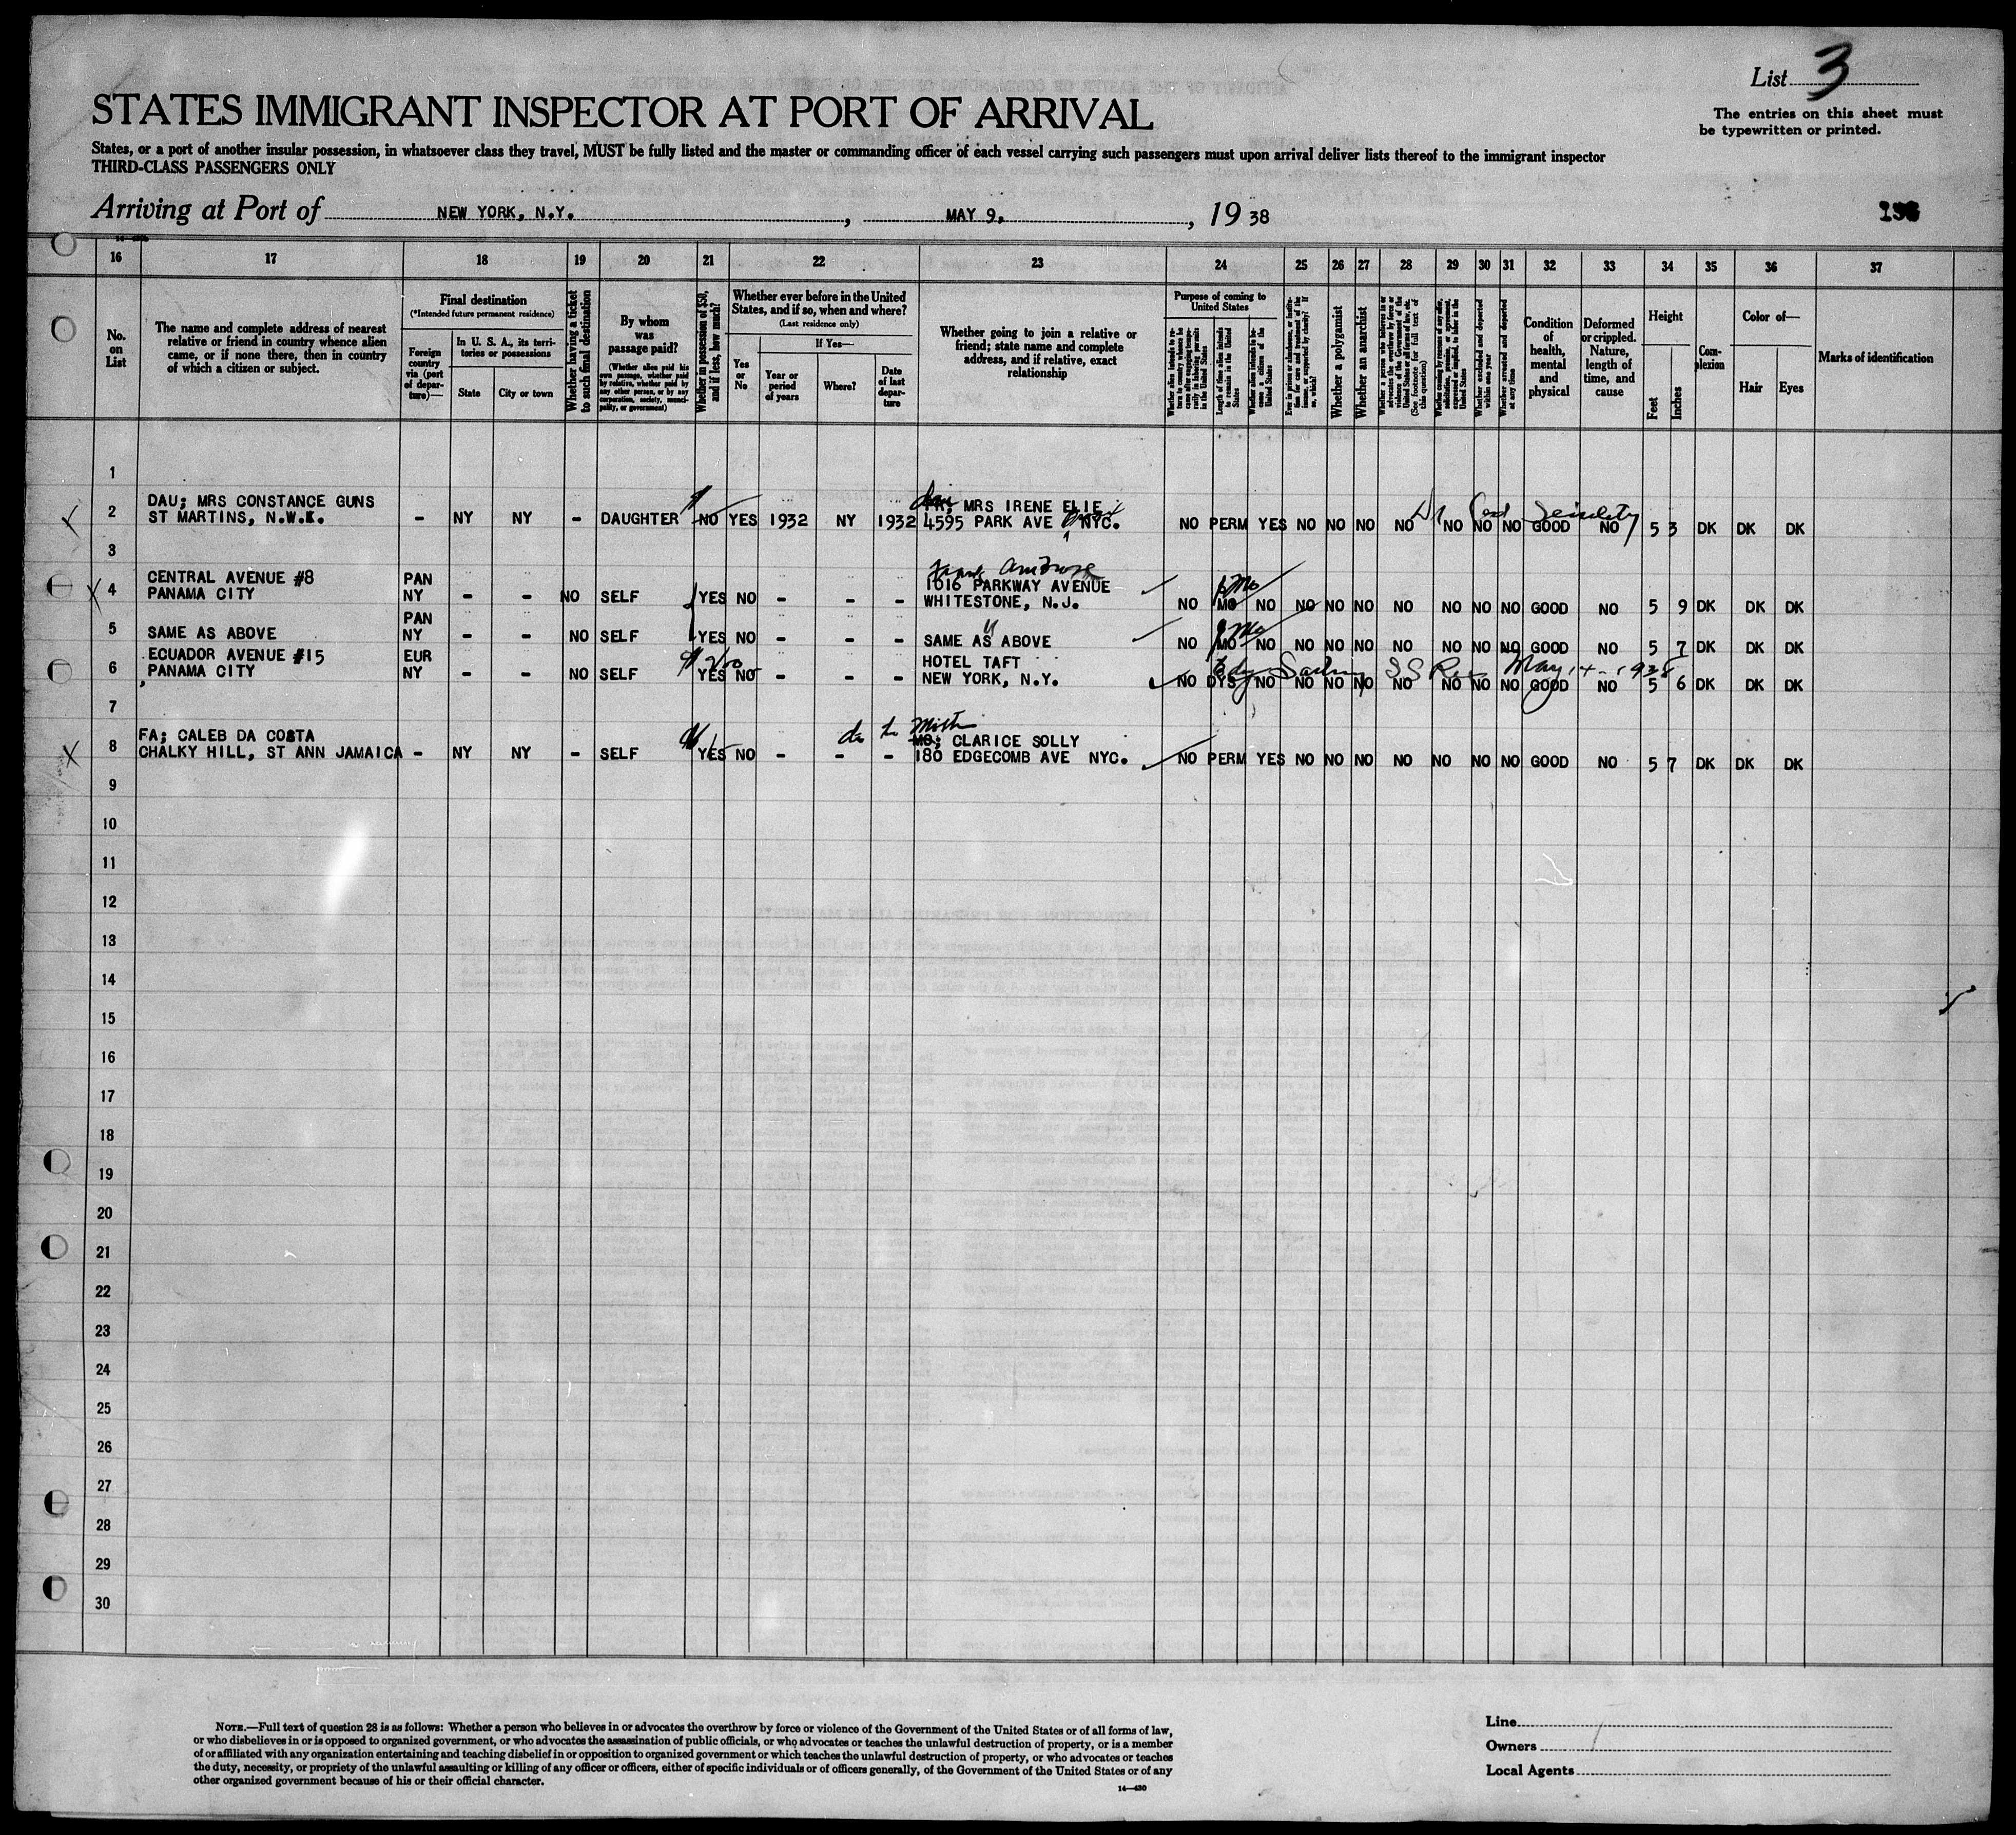 List 3
STATES IMMIGRANT INSPECTOR AT PORT OF ARRIVAL
The entries on this sheet must
be typewritten or printed.
States, or a port of another insular possession, in whatsoever class they travel, MUST be fully listed and the master or commanding officer of each vessel carrying such passengers must upon arrival deliver lists thereof to the immigrant inspector
THIRD-CLASS PASSENGERS ONLY
Arriving at Port of NEW YORK, N.Y. , MAY 9, , 19 38
16 17 18 19 20 21 22 23 24 25 26 27 28 29 30 31 32 33 34 35 36 37
No.
on
List
The name and complete address of nearest
relative or friend in country whence alien
came, or if none there, then in country
of which a citizen or subject.
Final destination
(*Intended future permanent residence)
Foreign
country
via (port
of depar-
ture)—
In U. S. A., its terri-
tories or possessions
State
City or town
Whether having a ticket
to such final destination
By whom
was
passage paid?
(Whether alien paid his
own passage, whether paid
by relative, whether paid by
any other person, or by any
corporation, society, munici-
pality, or government)
Whether in possession of $50,
and if less, how much?
Whether ever before in the United
States, and if so, when and where?
(Last residence only)
Yes
or
No
If Yes—
Year or
period
of years
Where?
Date
of last
depar-
ture
Whether going to join a relative or
friend; state name and complete
address, and if relative, exact
relationship
Purpose of coming to
United States
Whether alien intends to re-
turn to country whence he
came after engaging tempo-
rarily in laboring pursuits
in the United States
Length of time alien intends
to remain in the United
States
Whether alien intends to be-
come a citizen of the
United States
Whether a polygamist
Whether an anarchist
Whether a person who believes in or
advocates the overthrow by force or
violence of the Government of the
United States or all forms of law, etc.
(See footnote for full text of
this question)
Whether excluded and deported
within one year
Whether arrested and deported
at any time
Condition
of
health,
mental
and
physical
Deformed
or crippled.
Nature,
length of
time, and
cause
Height
Feet
Inches
Com-
plexion
Color of—
Hair
Eyes
Marks of identification
1
DAU; MRS CONSTANCE GUNS
2 ST MARTINS, N.W.I. - NY NY - DAUGHTER NO YES 1932 NY 1932
MRS IRENE ELIE
4595 PARK AVE NYC. NO PERM YES NO NO NO NO NO NO NO GOOD NO 5 3 DK DK DK
Senility
3
CENTRAL AVENUE #8 PAN
4 PANAMA CITY NY - - NO SELF YES NO - - -
1016 PARKWAY AVENUE
WHITESTONE, N.J. NO MO NO NO NO NO NO NO NO NO GOOD NO 5 9 DK DK DK
PAN
5 SAME AS ABOVE NY - - NO SELF YES NO - - - SAME AS ABOVE NO MO NO NO NO NO NO NO NO NO GOOD NO 5 7 DK DK DK
ECUADOR AVENUE #15 EUR HOTEL TAFT
6 PANAMA CITY NY - - NO SELF YES NO - - - NEW YORK, N.Y. NO DYS NO NO NO NO NO NO NO NO GOOD NO 5 6 DK DK DK
May 14 - 1938
7
FA; CALEB DA COSTA MO; CLARICE SOLLY
8 CHALKY HILL, ST ANN JAMAICA - NY NY - SELF YES NO - - - 180 EDGECOMB AVE NYC. NO PERM YES NO NO NO NO NO NO NO GOOD NO 5 7 DK DK DK
9
10
11
12
13
14
15
16
17
18
19
20
21
22
23
24
25
26
27
28
29
30
NOTE.—Full text of question 28 is as follows: Whether a person who believes in or advocates the overthrow by force or violence of the Government of the United States or of all forms of law,
or who disbelieves in or is opposed to organized government, or who advocates the assassination of public officials, or who advocates or teaches the unlawful destruction of property, or is a member
of or affiliated with any organization entertaining and teaching disbelief in or opposition to organized government or which teaches the unlawful destruction of property, or who advocates or teaches
the duty, necessity, or propriety of the unlawful assaulting or killing of any officer or officers, either of specific individuals or of officers generally, of the Government of the United States or of any
other organized government because of his or their official character.
14—430
Line
Owners
Local Agents